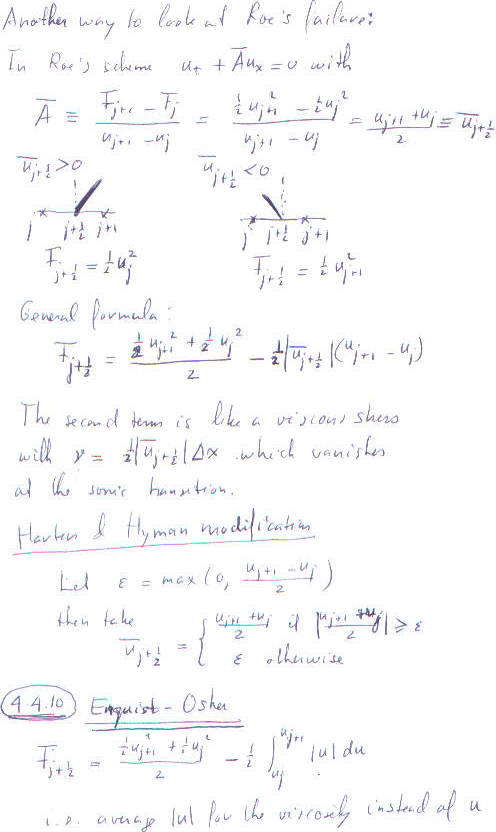 Another way to look at Roe's failure:
In Roe's scheme u_t + A̅u_x = 0 with
A̅ ≡ (F_{j+1} − F_j)/(u_{j+1} − u_j) = (½u_{j+1}² − ½u_j²)/(u_{j+1} − u_j) = (u_{j+1} + u_j)/2 ≡ u̅_{j+½}
u̅_{j+½} > 0    u̅_{j+½} < 0
j  j+½  j+1    j  j+½  j+1
F_{j+½} = ½u_j²    F_{j+½} = ½u_{j+1}²
General formula:
F_{j+½} = (½u_{j+1}² + ½u_j²)/2 − ½|u̅_{j+½}|(u_{j+1} − u_j)
The second term is like a viscous stress
with ν = ½|u̅_{j+½}|Δx which vanishes
at the sonic transition.
Harten & Hyman modification
Let ε = max(0, (u_{j+1} − u_j)/2)
then take
u̅_{j+½} = { (u_{j+1} + u_j)/2 if |(u_{j+1} + u_j)/2| ≥ ε
ε otherwise
4.4.10 Enquist-Osher
F_{j+½} = (½u_{j+1}² + ½u_j²)/2 − ½ ∫_{u_j}^{u_{j+1}} |u| du
i.e. average |u| for the viscosity instead of u